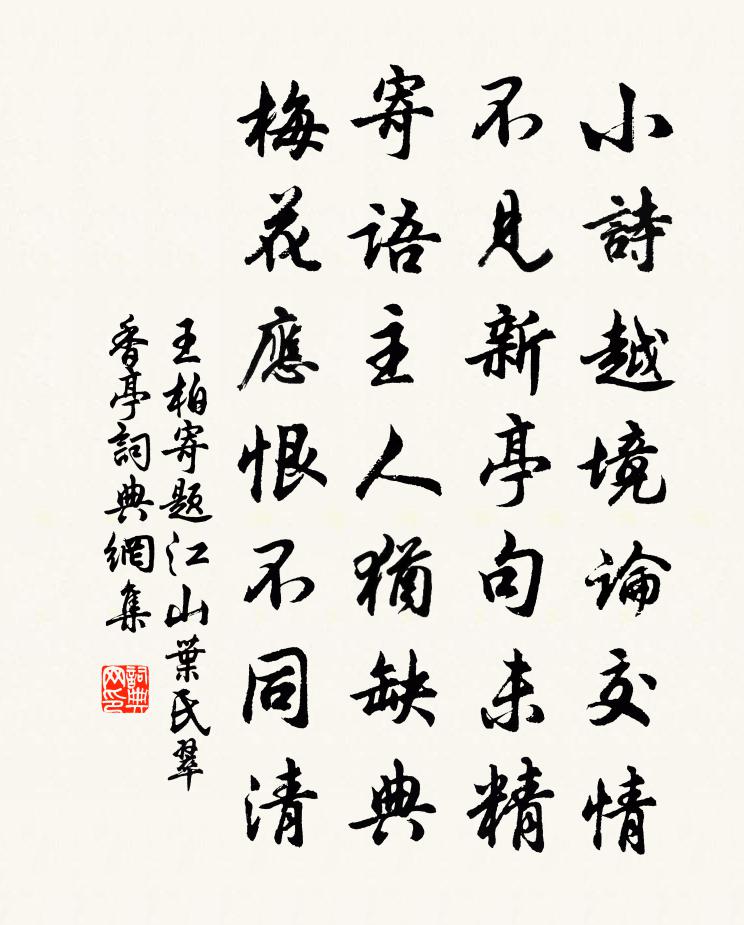 小詩越境論交情
不見新亭句未精
寄語主人猶缺典
梅花應恨不同清
王柏寄題江山葉氏翠
香亭詞典網集
詞典網印